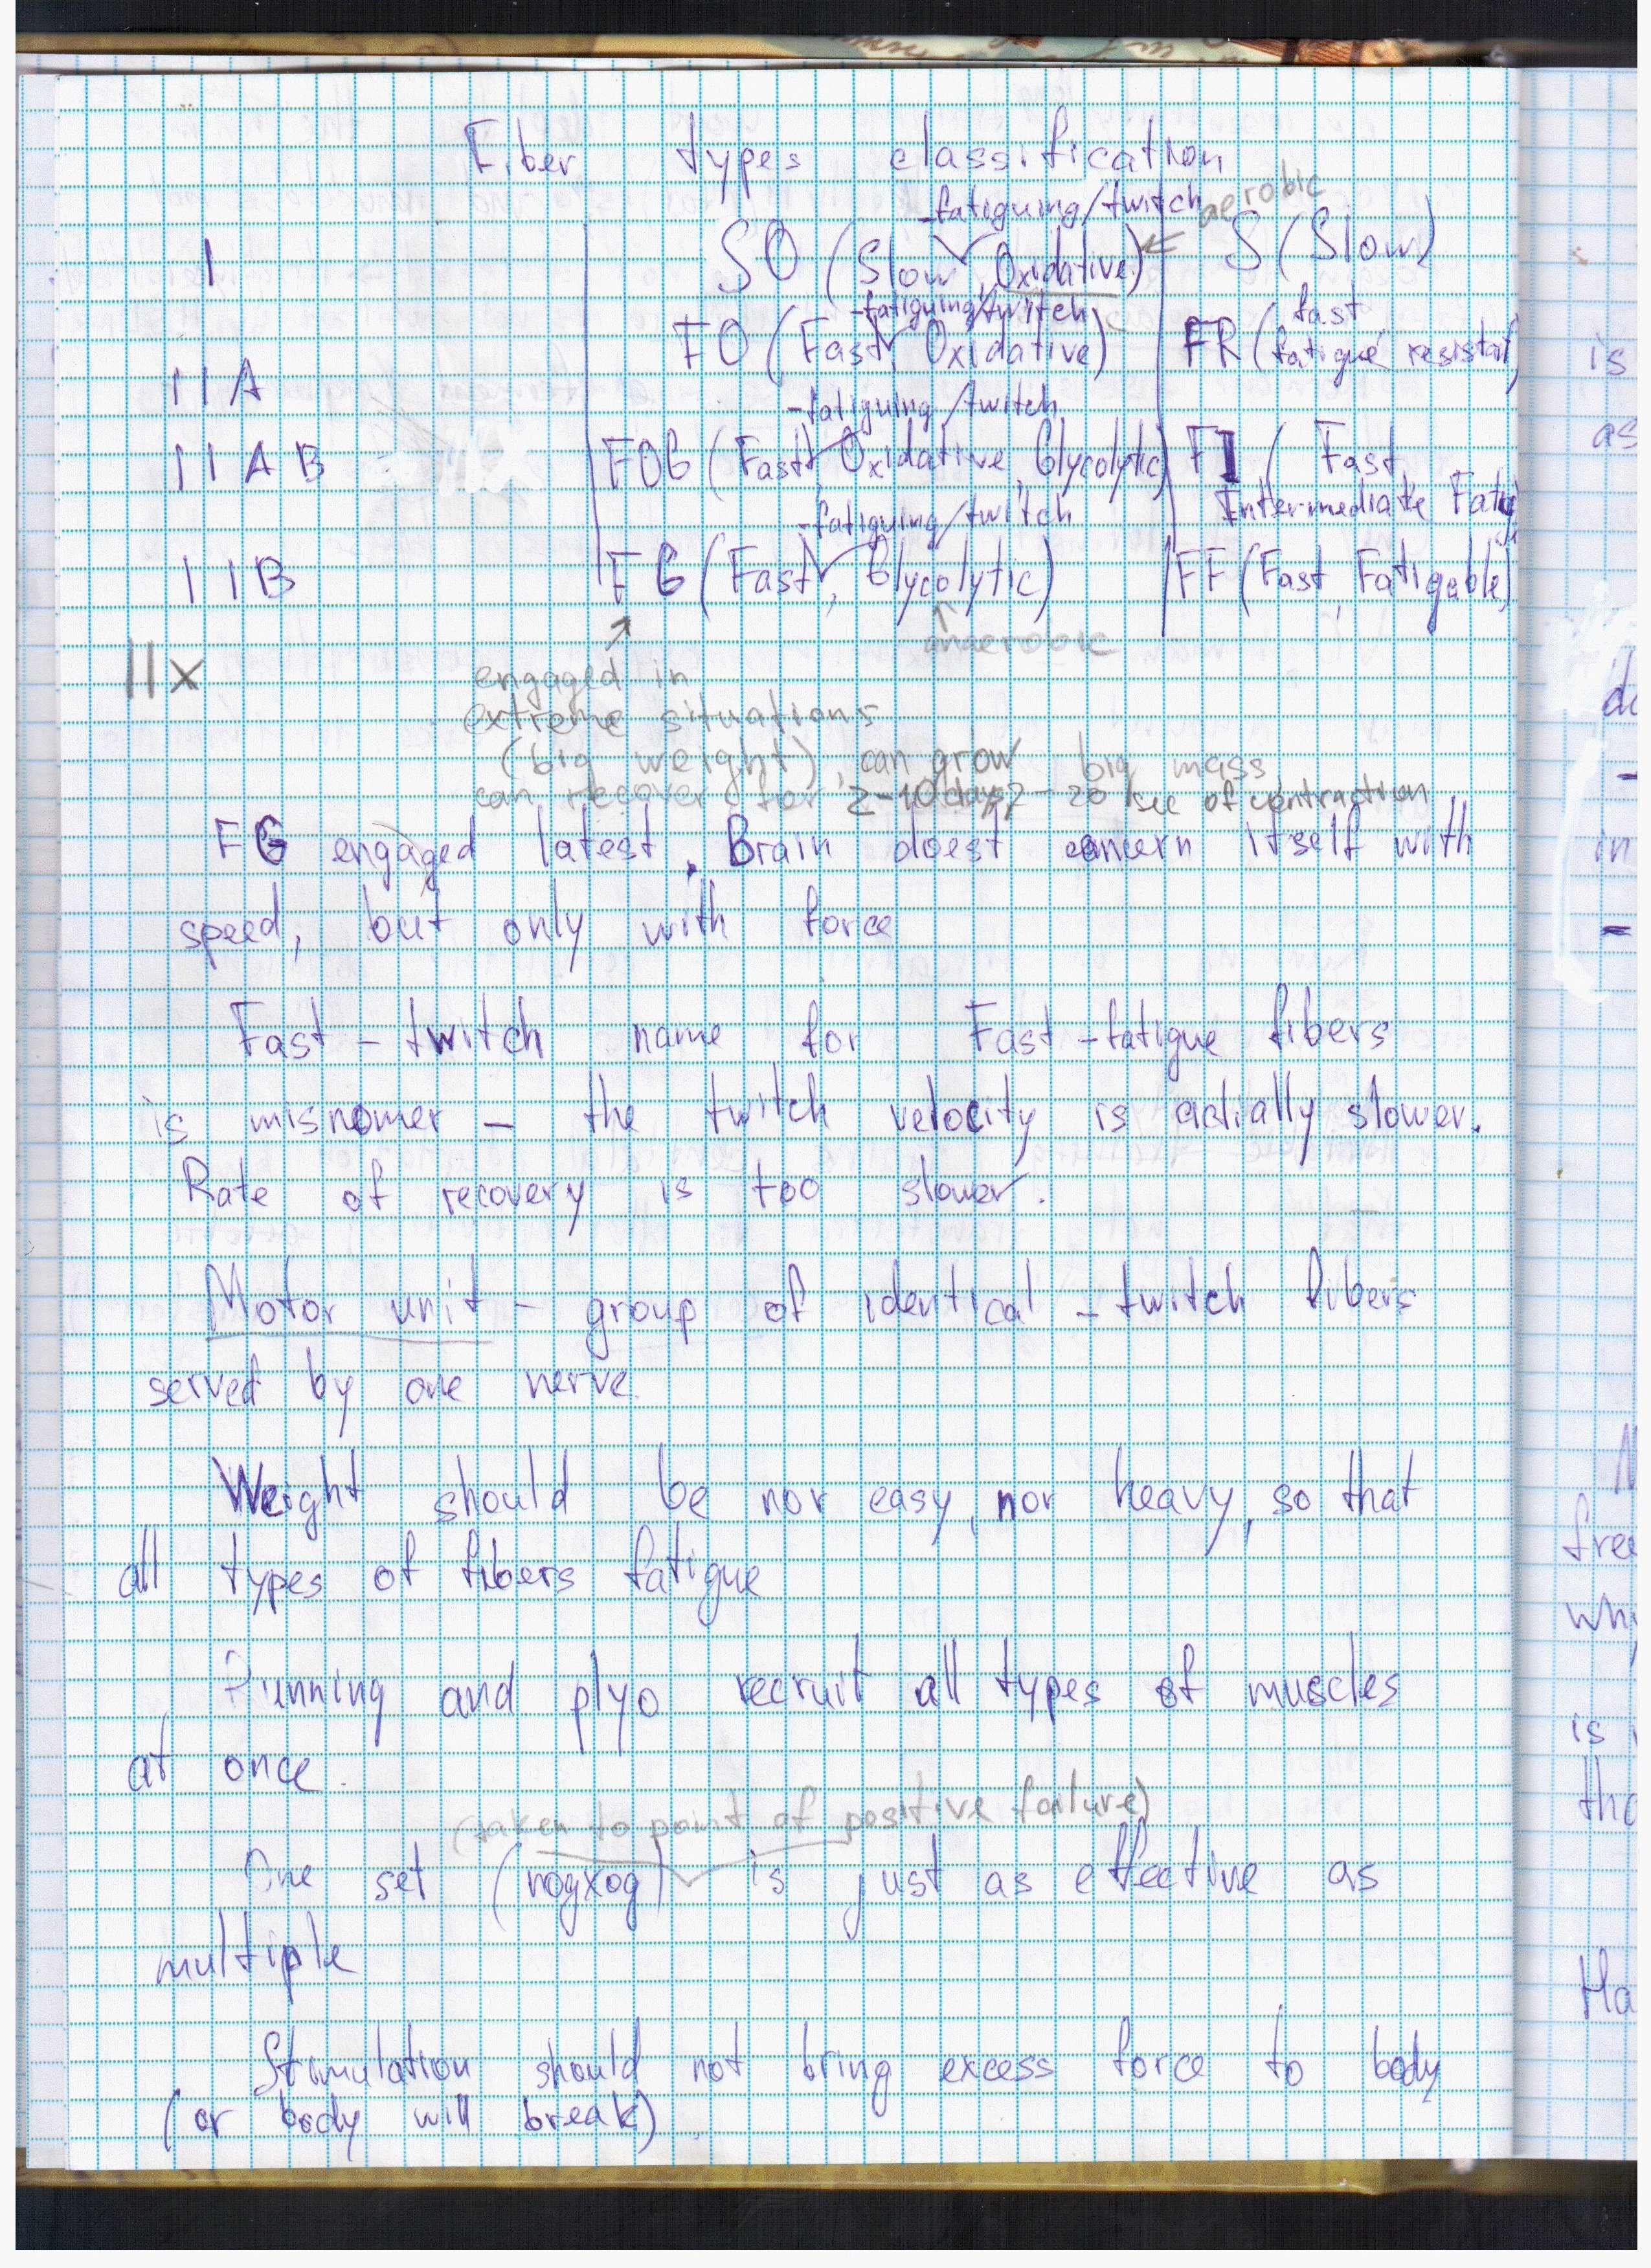 Fiber types classification
-fatiguing/twitch aerobic
I SO (Slow, Oxidative) S (Slow)
-fatiguing/twitch fast
IIA FO (Fast, Oxidative) FR (fatigue resistant)
-fatiguing/twitch
IIAB FOG (Fast, Oxidative, Glycolytic) FI (Fast,
-fatiguing/twitch Intermediate Fatig
IIB FG (Fast, Glycolytic) FF (Fast, Fatigable)
anaerobic
IIx
engaged in
extreme situations
(big weight), can grow big mass
can recover for 2-10 days, 2-20 sec of contraction
FG engaged latest. Brain doest concern itself with
speed, but only with force
Fast-twitch name for Fast-fatigue fibers
is misnomer - the twitch velocity is actially slower.
Rate of recovery is too slower.
Motor unit - group of identical-twitch fibers
served by one nerve.
Weight should be nor easy, nor heavy, so that
all types of fibers fatigue
Running and plyo recruit all types of muscles
at once.
(taken to point of positive failure)
One set (подход) is just as effective as
multiple
Stimulation should not bring excess force to body
(or body will break).
is
as
in
free
why
is
Ha